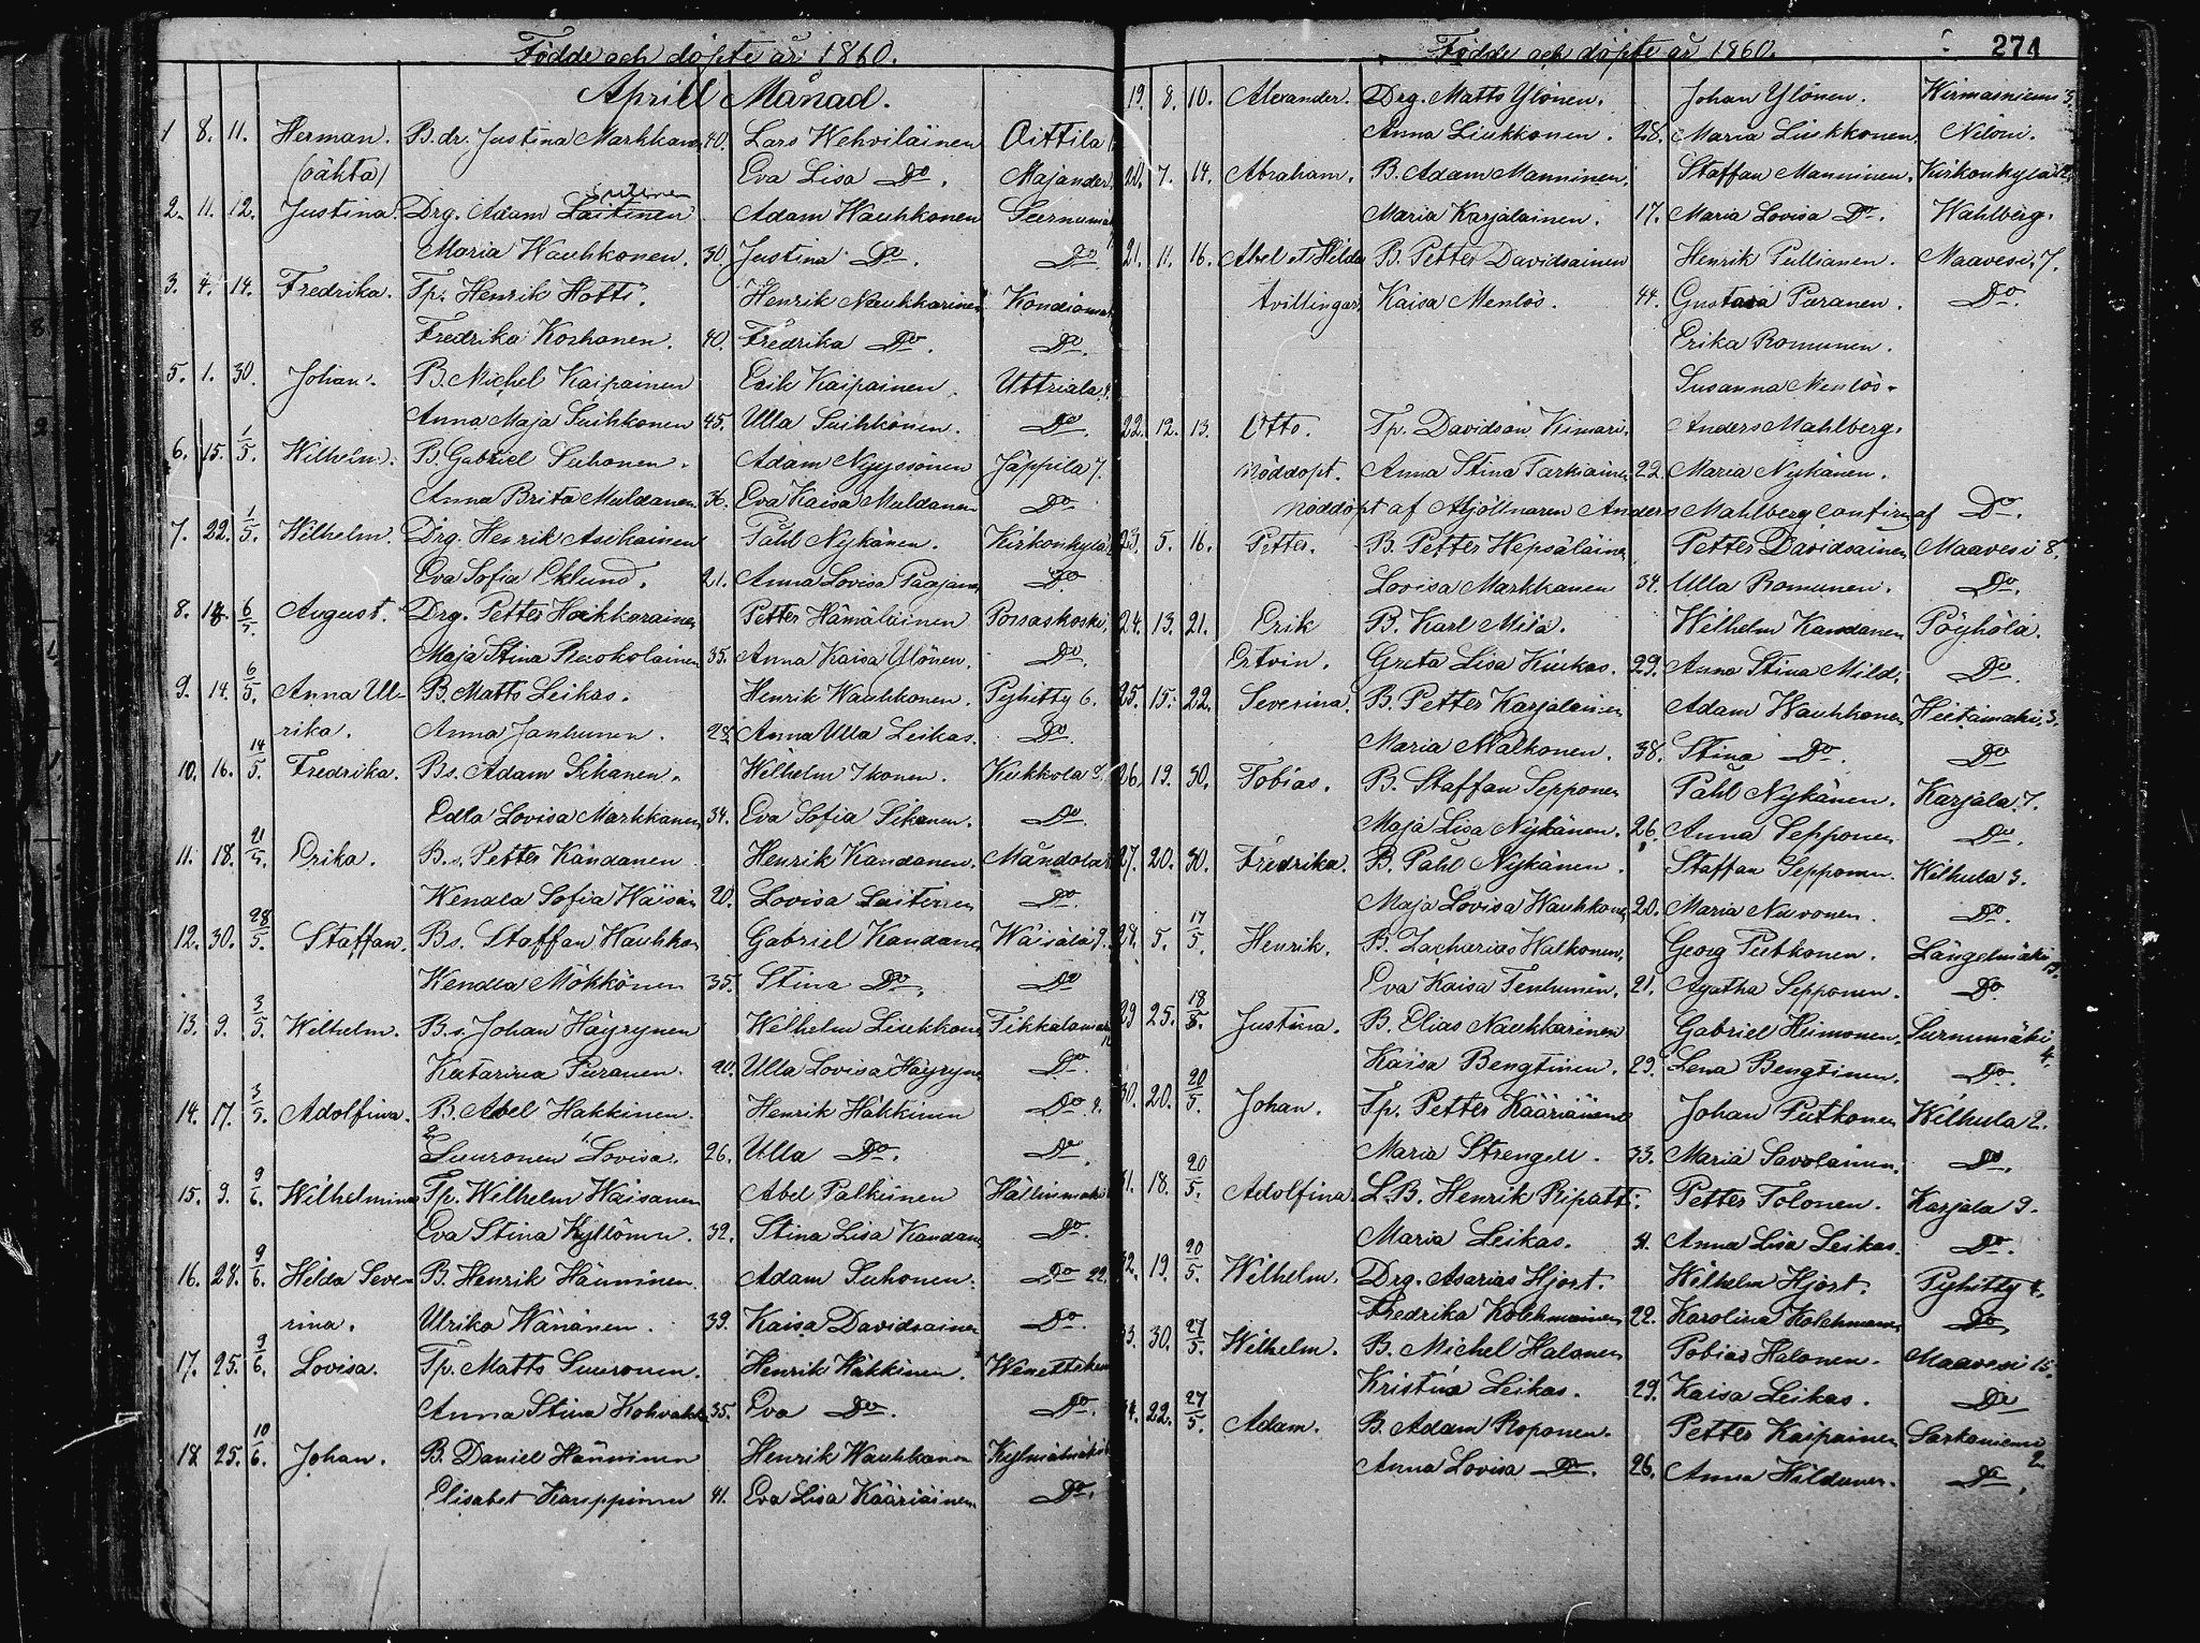 Födde och döpte år 1860.
April Månad.
1 8. 11. Herman. B. dr. Justina Markkan 40. Lars Wehviläinen Oittila
(oäkta) Eva Lisa Do. Majander
2. 11. 12. Justina. Drg. Adam Laitinen Adam Wauhkonen
Maria Wauhkonen. 30 Justina Do. Do.
3. 4. 14. Fredrika. Tp. Henrik Hotti. Henrik Naukkarinen
Fredrika Koskonen. 40. Fredrika Do. Do.
5. 1. 30. Johan. B. Michel Kaipainen Erik Kaipainen Uttriala
Anna Maja Suihkonen 45. Ulla Suihkonen. Do.
6. 15. 1/5. Wilhelm. B. Gabriel Suhonen. Adam Nyyssönen Jäppilä 7.
Anna Brita Muldanen 36. Eva Kaisa Muldanen Do
7. 22. 1/5. Wilhelm. Drg. Henrik Asikainen Påhl Nykänen. Kirkonkylä
Eva Sofia Eklund. 21. Anna Lovisa Pääjänen Do.
8. 18. 6/5. August. Drg. Petter Hoikkorainen Petter Hämäläinen Porsaskoski
Maja Stina 35. Anna Kaisa Ylönen. Do.
9. 14. 6/5. Anna Ul- B. Matts Leikas. Henrik Wauhkonen. Pyhitty 6.
rika. Anna Janhunen. 28. Anna Ulla Leikas. Do.
10. 16. 14/5. Fredrika. Bs. Adam Sikanen. Wilhelm Ikonen. Kukkola
Edla Lovisa Markkanen 34. Eva Sofia Sikanen. Do.
11. 18. 21/5. Erika. B.s. Petter Kandanen Henrik Kandanen. Mändola
Wendla Sofia Wäisän 20. Lovisa Laitinen Do.
12. 30. 28/5. Staffan. Bs. Staffan Wauhkon Gabriel Kandanen Wäisälä 9.
Wendla Mökkönen 35. Stina Do. Do
13. 9. 3/5. Wilhelm. B.s. Johan Häyrynen Wilhelm Liukkonen
Katarina Puranen. 20. Ulla Lovisa Häyrynen Do.
14. 17. 3/5. Adolfina. B. Abel Hakkinen. Henrik Hakkinen Do 2.
Suuronen Lovisa. 26. Ulla Do. Do.
15. 9. 9/6. Wilhelmina Tp. Wilhelm Waisanen Abel Palkinen
Eva Stina Kyllönen. 32. Stina Lisa Kandanen Do.
16. 28. 9/6. Hilda Seve- B. Henrik Hänninen. Adam Suhonen. Do 22.
rina. Ulrika Wänänen. 39. Kaisa Davidsainen Do.
17. 25. 9/6. Lovisa. Tp. Matts Suuronen. Henrik Häkkinen.
Anna Stina Kohvakka 35. Eva Do. Do.
18 25. 10/6. Johan. B. Daniel Hänninen Henrik Wauhkonen Kylmämäki
Elisabet Karppinen 41. Eva Lisa Kääriäinen Do.
Födde och döpte år 1860. 274
19. 8. 10. Alexander. Drg. Matts Ylönen. Johan Ylönen. Wirmasniemi 3.
Anna Liukkonen. 28. Maria Liukkonen. Niloni.
20. 7. 14. Abraham. B. Adam Manninen. Staffan Manninen. Kirkonkylä 12
Maria Karjalainen. 17. Maria Lovisa Do. Wahlberg.
21. 11. 16. Abel et Hilda B. Petter Davidsainen Henrik Pullianen. Maavesi 7.
tvillingar. Kaisa Menlös. 44. Gustava Puranen. Do.
Erika Romunen.
Susanna Menlös.
22. 12. 13. Otto. Tp. Davidson Kimari. Anders Mahlberg.
nöddöpt. Anna Stina Tarkiainen 22. Maria Nykänen.
nöddöpt af Mjöllnaren Anders Mahlberg confirm. af Do.
23. 5. 16. Petter. B. Petter Hepsäläinen Petter Davidsainen Maavesi 8.
Lovisa Markkanen 34. Ulla Romunen. Do.
24. 13. 21. Erik B. Karl Mild. Wilhelm Kandanen Pöyhölä.
Ertvin. Greta Lisa Kiukas. 29. Anna Stina Mild. Do.
25. 15. 22. Severina. B. Petter Karjalainen Adam Wauhkonen Hietämäki 3.
Maria Malkonen. 38. Stina Do. Do
26. 19. 30. Tobias. B. Staffan Sepponen Påhl Nykänen. Karjala 7.
Maja Lisa Nykänen. 26. Anna Sepponen Do.
27. 20. 30. Fredrika. B. Påhl Nykänen. Staffan Sepponen. Wilhula 3.
Maja Lovisa Wauhkonen 20. Maria Nuvonen. Do.
28. 5. 17/5 Henrik. B. Zacharias Walkonen. Georg Putkonen. Längelmäki 13.
Eva Kaisa Tenhunen. 21. Agatha Sepponen. Do.
29 25. 18/5. Justina. B. Elias Naukkarinen Gabriel Heimonen. Surnumäki 4.
Kaisa Bengtinen. 29. Lena Bengtinen. Do.
30. 20. 20/5. Johan. Tp. Petter Kääriäinen Johan Putkonen Wilhula 2.
Maria Strengell. 33. Maria Savolainen. Do.
31. 18. 20/5. Adolfina. L.B. Henrik Ripatti. Petter Tolonen. Karjala 9.
Maria Leikas. 31. Anna Lisa Leikas. Do.
32. 19. 20/5. Wilhelm. Drg. Asarias Hjort. Wilhelm Hjort. Pyhitty 4.
Fredrika Kolehmainen 22. Karolina Kolehmainen Do.
33. 30. 27/5. Wilhelm. B. Michel Halonen Tobias Halonen. Maavesi 15.
Kristina Leikas. 29. Kaisa Leikas. Do
34. 22. 27/5. Adam. B. Adam Roponen. Petter Kaipainen Sarkaniemi 2.
Anna Lovisa Do. 26. Anna Hildunen. Do.